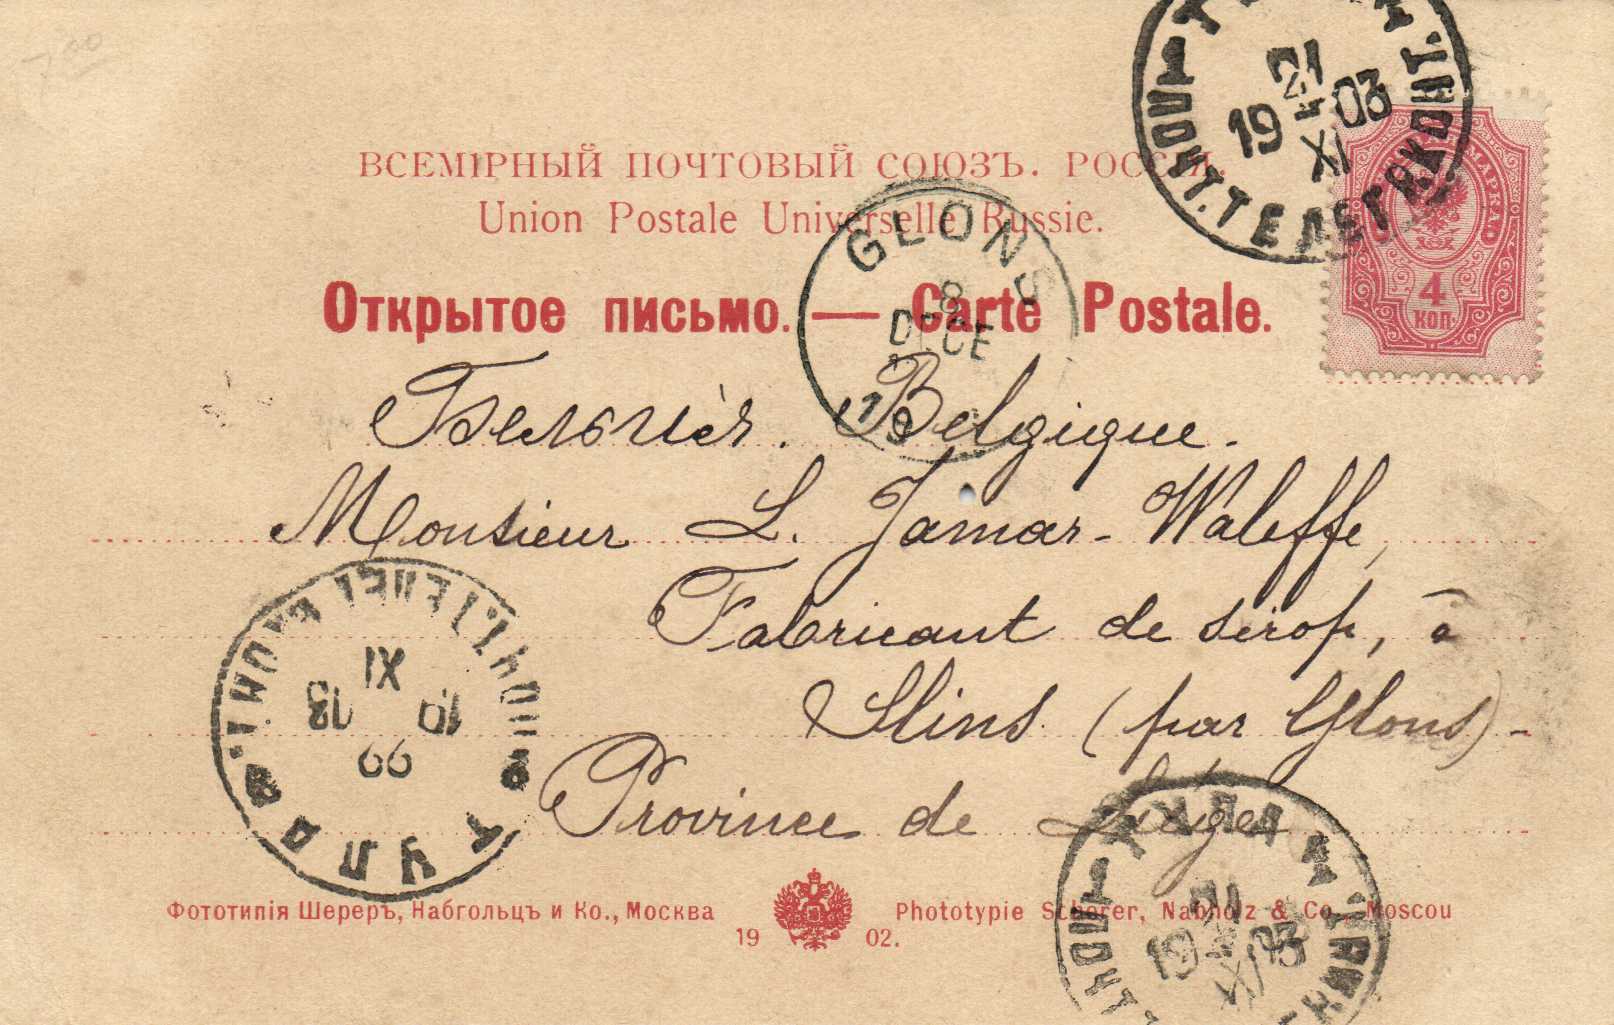 7.00
ВСЕМІРНЫЙ ПОЧТОВЫЙ СОЮЗЪ. РОССІЯ.
Union Postale Universelle Russie.
Открытое письмо. — Carte Postale.
19 03
XI
ПОЧТ. ТЕЛЕГР. КОНТ.
МАРКА
4
КОП.
GLONS
8
DECE
19
Бельгія. Belgique.
Monsieur L. Jamar-Waleffe,
Fabricant de sirop, à
Slins (par Glons) -
Province de Liége
ТУЛА
ПОЧТ. ТЕЛЕГ. КОНТ.
XI
ТУЛА
19 03
XI
Фототипія Шереръ, Набгольцъ и Ко., Москва
Phototypie Scherer, Nabholz & Co., Moscou
19 02.